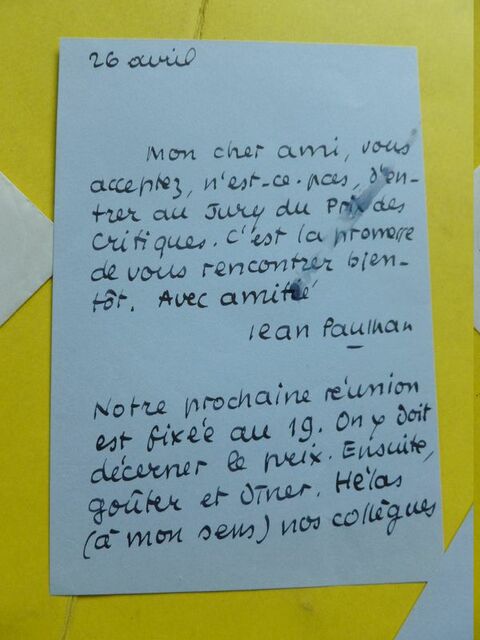 26 avril
Mon cher ami, vous
acceptez, n'est-ce-pas, d'en-
trer au Jury du Prix des
Critiques. C'est la promesse
de vous rencontrer bien-
tôt. Avec amitié
Jean Paulhan
Notre prochaine réunion
est fixée au 19. On y doit
décerner le prix. Ensuite,
goûter et dîner. Hélas
(à mon sens) nos collègues